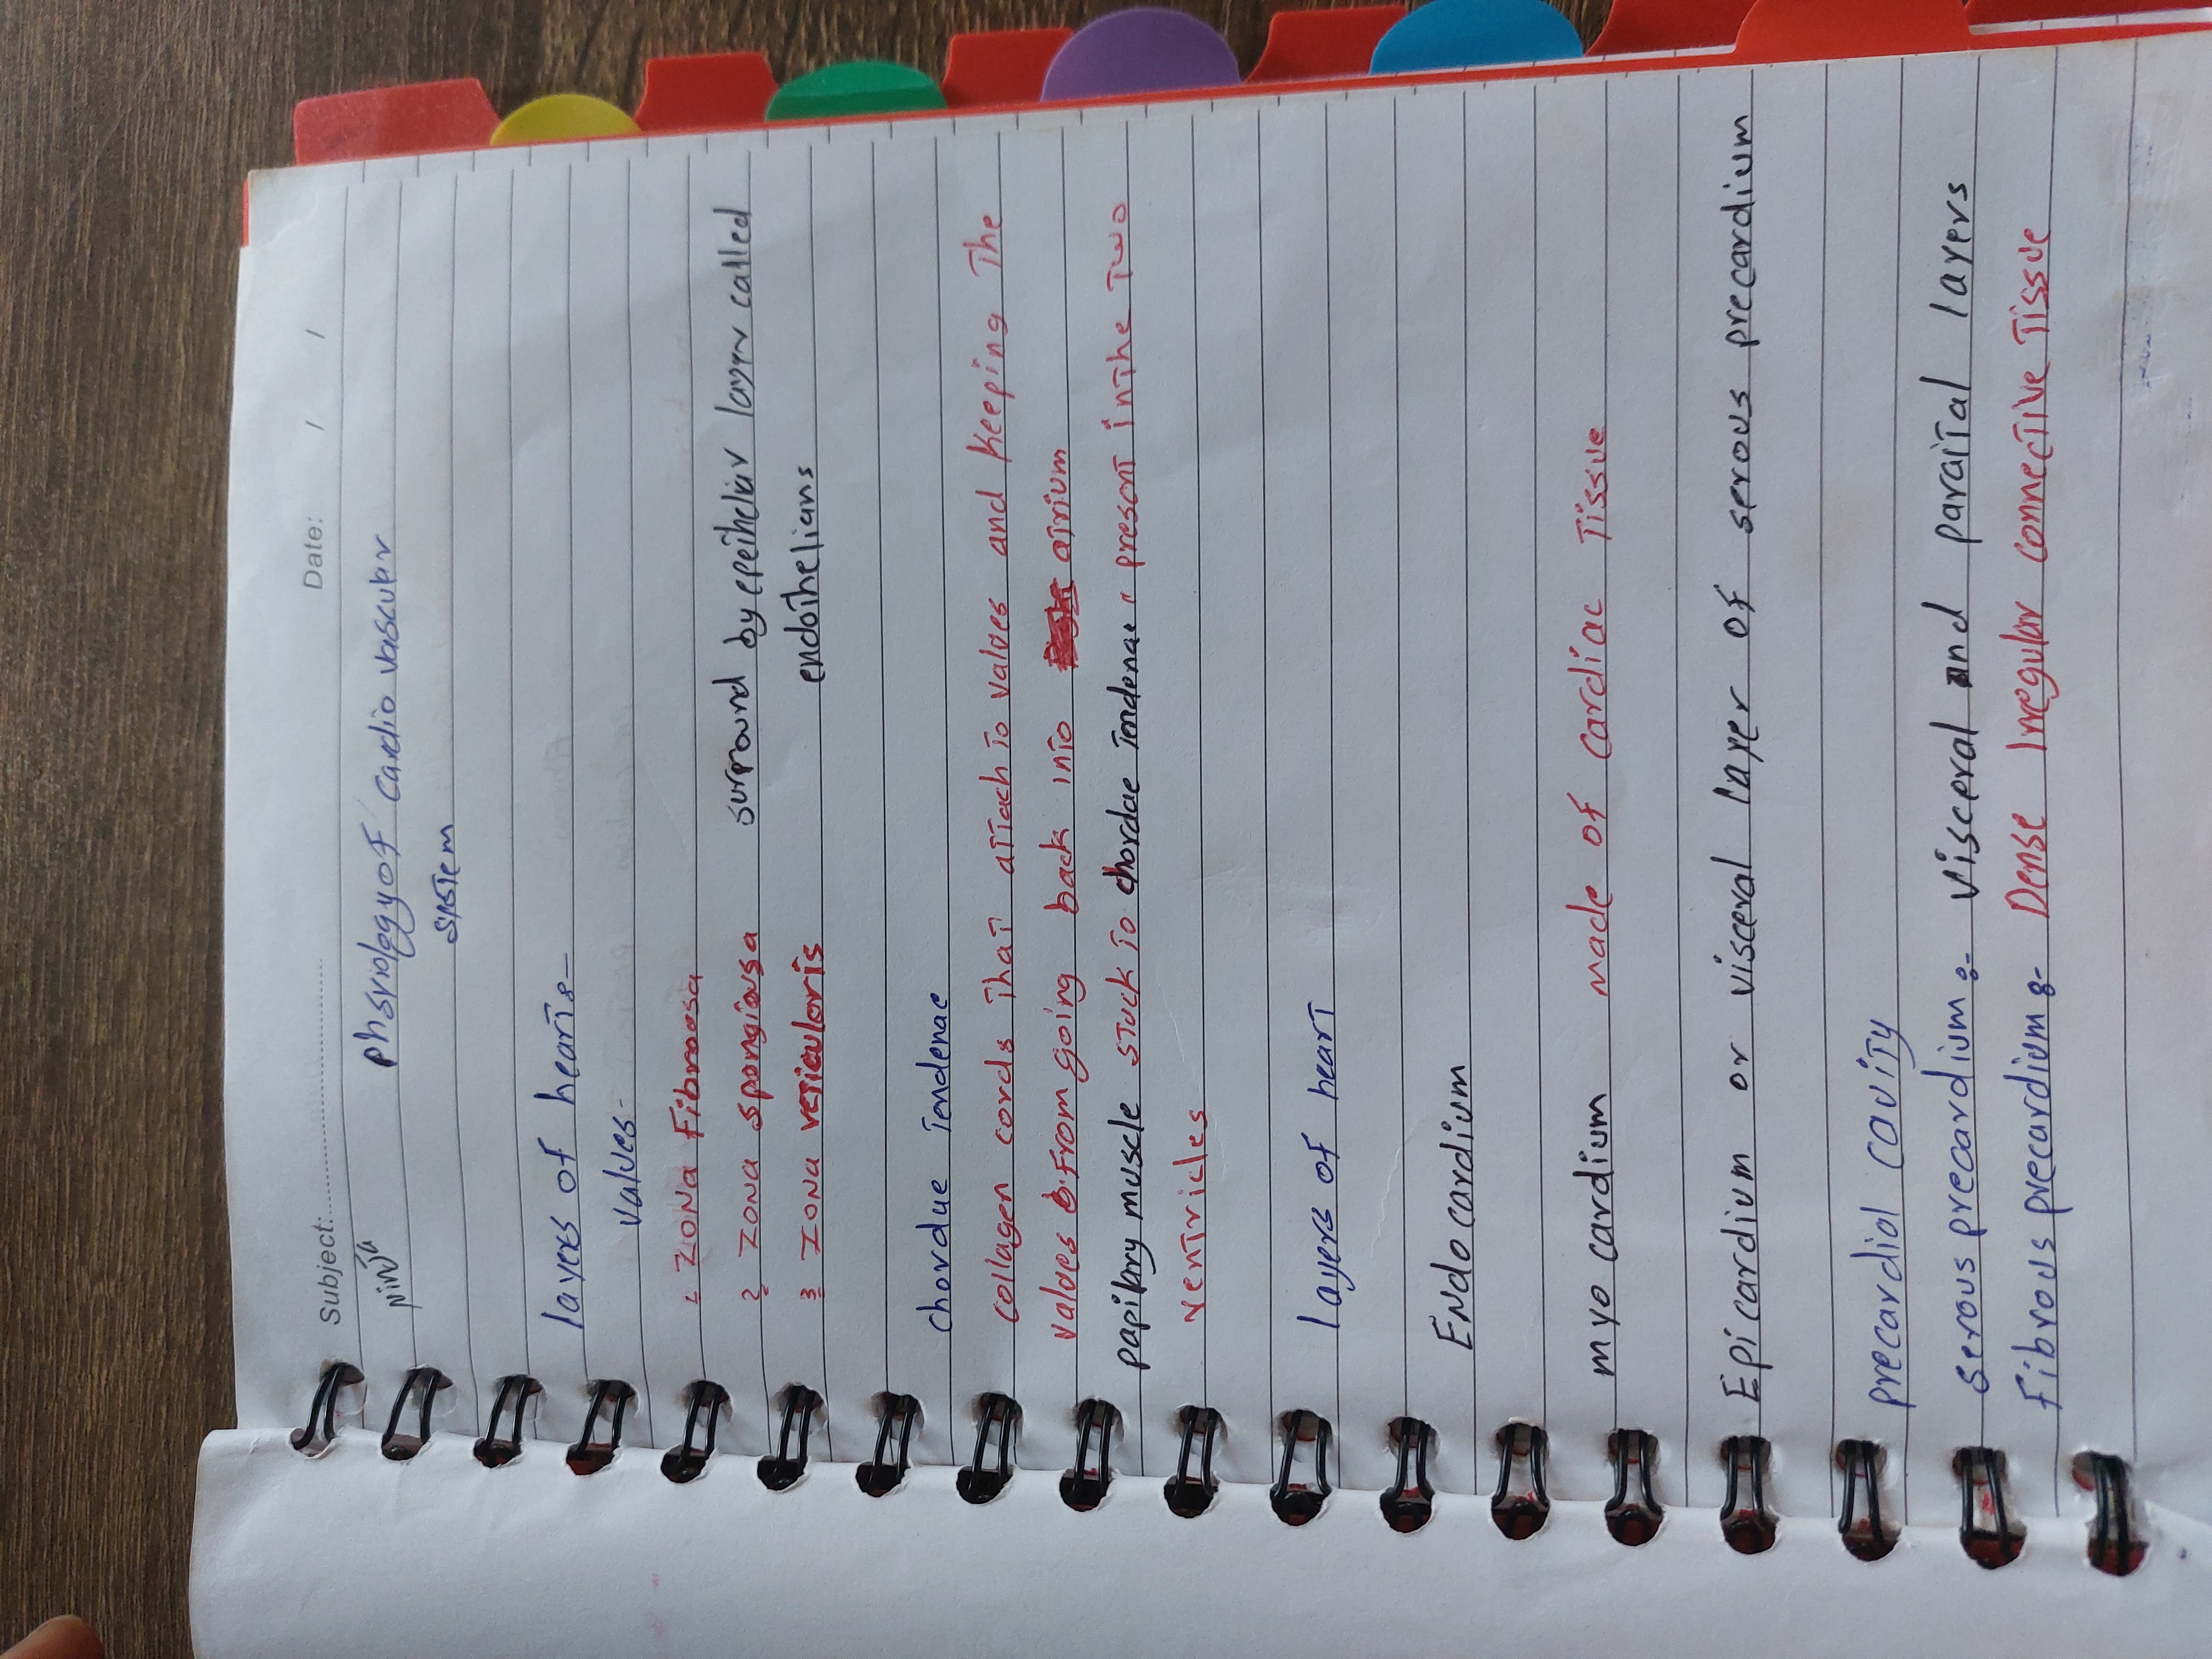 Subject:.................... Date: / /
Ninja
phsyiology of cardio vascular
system
layers of heart:-
valves:-
1- ZONA Fibroosa
2- ZONA spongiosa surround by epitheliar layer called
3- ZONA veticuloris endothelians
chordue Tendenae
collagen cords That attach to valves and Keeping The
valves From going back into atrium
papillary muscle stuck To chordae Tendenae " present in the Two
ventricles
layers of heart
Endo cardium
myo cardium made of cardiac Tissue
Epicardium or visceral layer of serous precardium
precardial cavity
serous precardium :- visceral and paraital layers
Fibrous precardium :- Dense Irregular connective Tissue